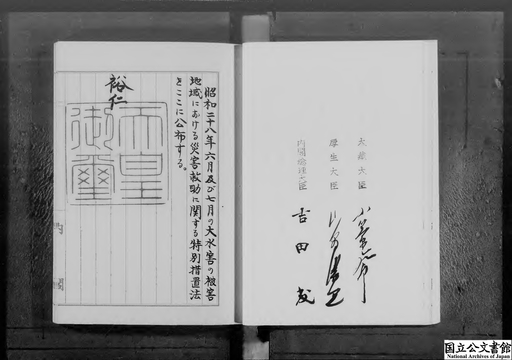 昭和二十八年六月及び七月の大水害の被害
地域における災害救助に関する特別措置法
をここに公布する。
裕仁
天皇
御璽
大蔵大臣
厚生大臣
内閣総理大臣
吉田茂
国立公文書館
National Archives of Japan